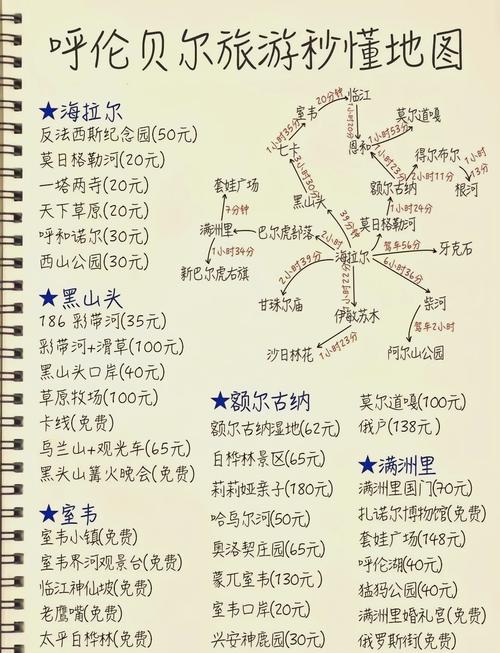 呼伦贝尔旅游秒懂地图
★海拉尔
反法西斯纪念园(50元)
莫日格勒河(20元)
一塔两寺(20元)
天下草原(20元)
呼和诺尔(30元)
西山公园(30元)
★黑山头
186 彩带河(35元)
彩带河+滑草(100元)
黑山头口岸(40元)
草原牧场(100元)
卡线(免费)
乌兰山+观光车(65元)
黑头山篝火晚会(免费)
★室韦
室韦小镇(免费)
室韦界河观景台(免费)
临江神仙坡(免费)
老鹰嘴(免费)
太平白桦林(免费)
临江
20分钟
室韦
莫尔道嘎
1小时53分
恩和
1小时35分
七卡
得尔布尔
2小时11分
根河
额尔古纳
套娃广场
7分钟
黑山头
39分钟
1小时24分
莫日格勒河
满洲里
巴尔虎部落
2小时
驾车56分
牙克石
1小时34分
海拉尔
新巴尔虎右旗
2小时39分
6小时36分
甘珠尔庙
伊敏苏木
柴河
驾车2小时
沙日林花
1小时23分
阿尔山公园
★额尔古纳
额尔古纳湿地(62元)
白桦林景区(65元)
莉莉娅亲子(180元)
哈乌尔河(50元)
奥洛契庄园(65元)
蒙兀室韦(130元)
室韦口岸(20元)
兴安神鹿园(30元)
莫尔道嘎(100元)
俄户(138元)
★满洲里
满洲里国门(70元)
扎诺尔博物馆(免费)
套娃广场(148元)
呼伦湖(40元)
猛犸公园(40元)
满洲里婚礼宫(免费)
俄罗斯街(免费)